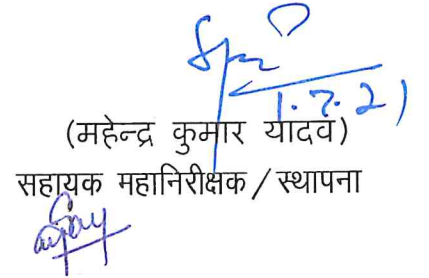 1.7.21
(महेन्द्र कुमार यादव)
सहायक महानिरीक्षक / स्थापना